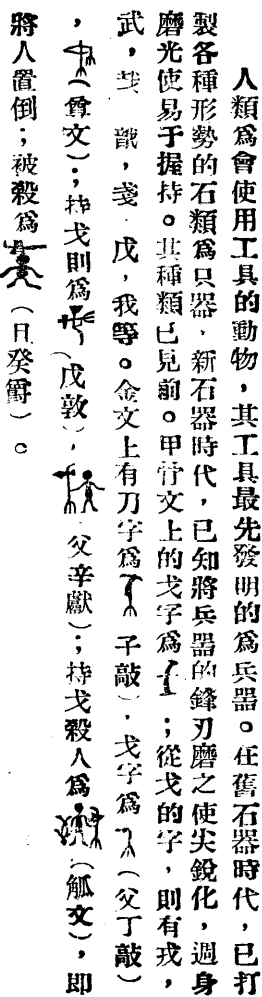 人類爲會使用工具的動物，其工具最先發明的爲兵器。在舊石器時代，已打
製各種形勢的石類爲兵器，新石器時代，已知將兵器的鋒刃磨之使尖銳化，週身
磨光使易于握持。其種類已見前。甲骨文上的戈字爲；從戈的字，則有戎，
武，戔，戊，我等。金文上有刀字爲（子敲），戈字爲（父丁敲）
，（尊文）；持戈則爲（戊敦），（父辛獻）；持戈殺人爲（觚文），即
將人置倒；被殺爲（且癸爵）。